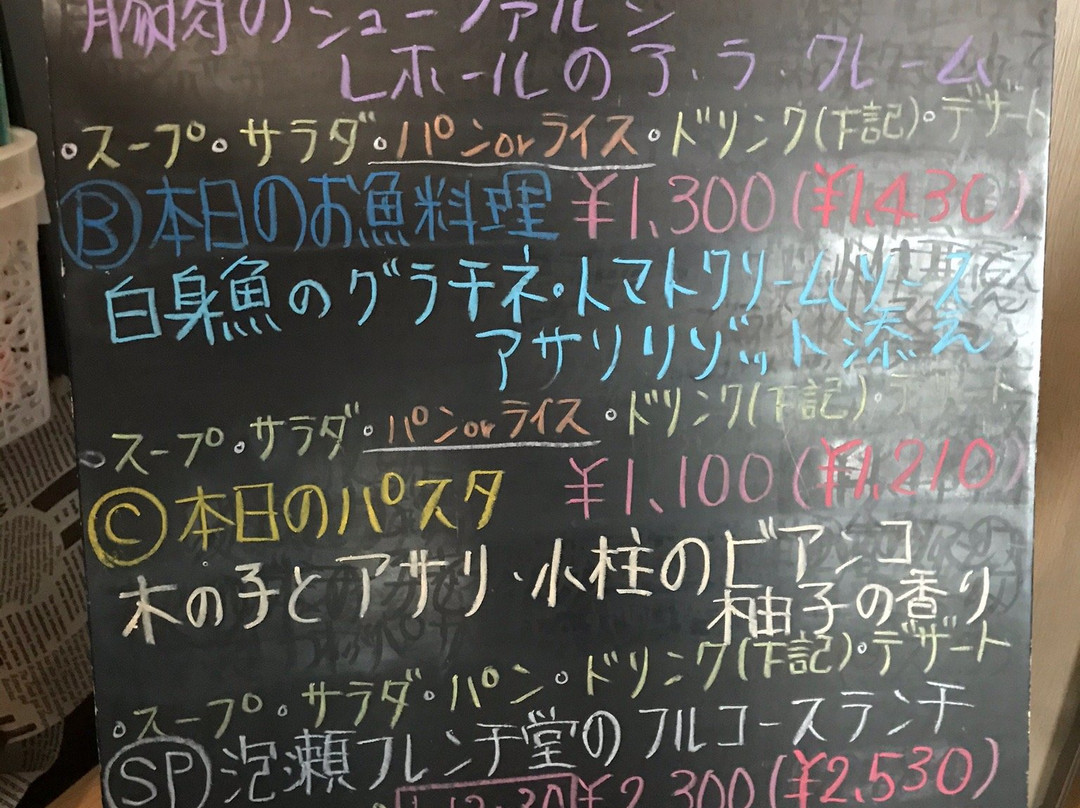 豚肉のシューファルシ
レホールのア・ラ・クレーム
。スープ。サラダ。パンorライス。ドリンク(下記)。デザート
Ⓑ本日のお魚料理 ¥1,300(¥1,430)
白身魚のグラチネ。トマトクリームソース
アサリリゾット添え
。スープ。サラダ。パンorライス。ドリンク(下記)。デザート
Ⓒ本日のパスタ ¥1,100(¥1,210)
木の子とアサリ・小柱のビアンコ
柚子の香り
。スープ。サラダ。パン。ドリンク(下記)。デザート
SP 泡瀬フレンチ堂のフルコースランチ
¥2,300(¥2,530)